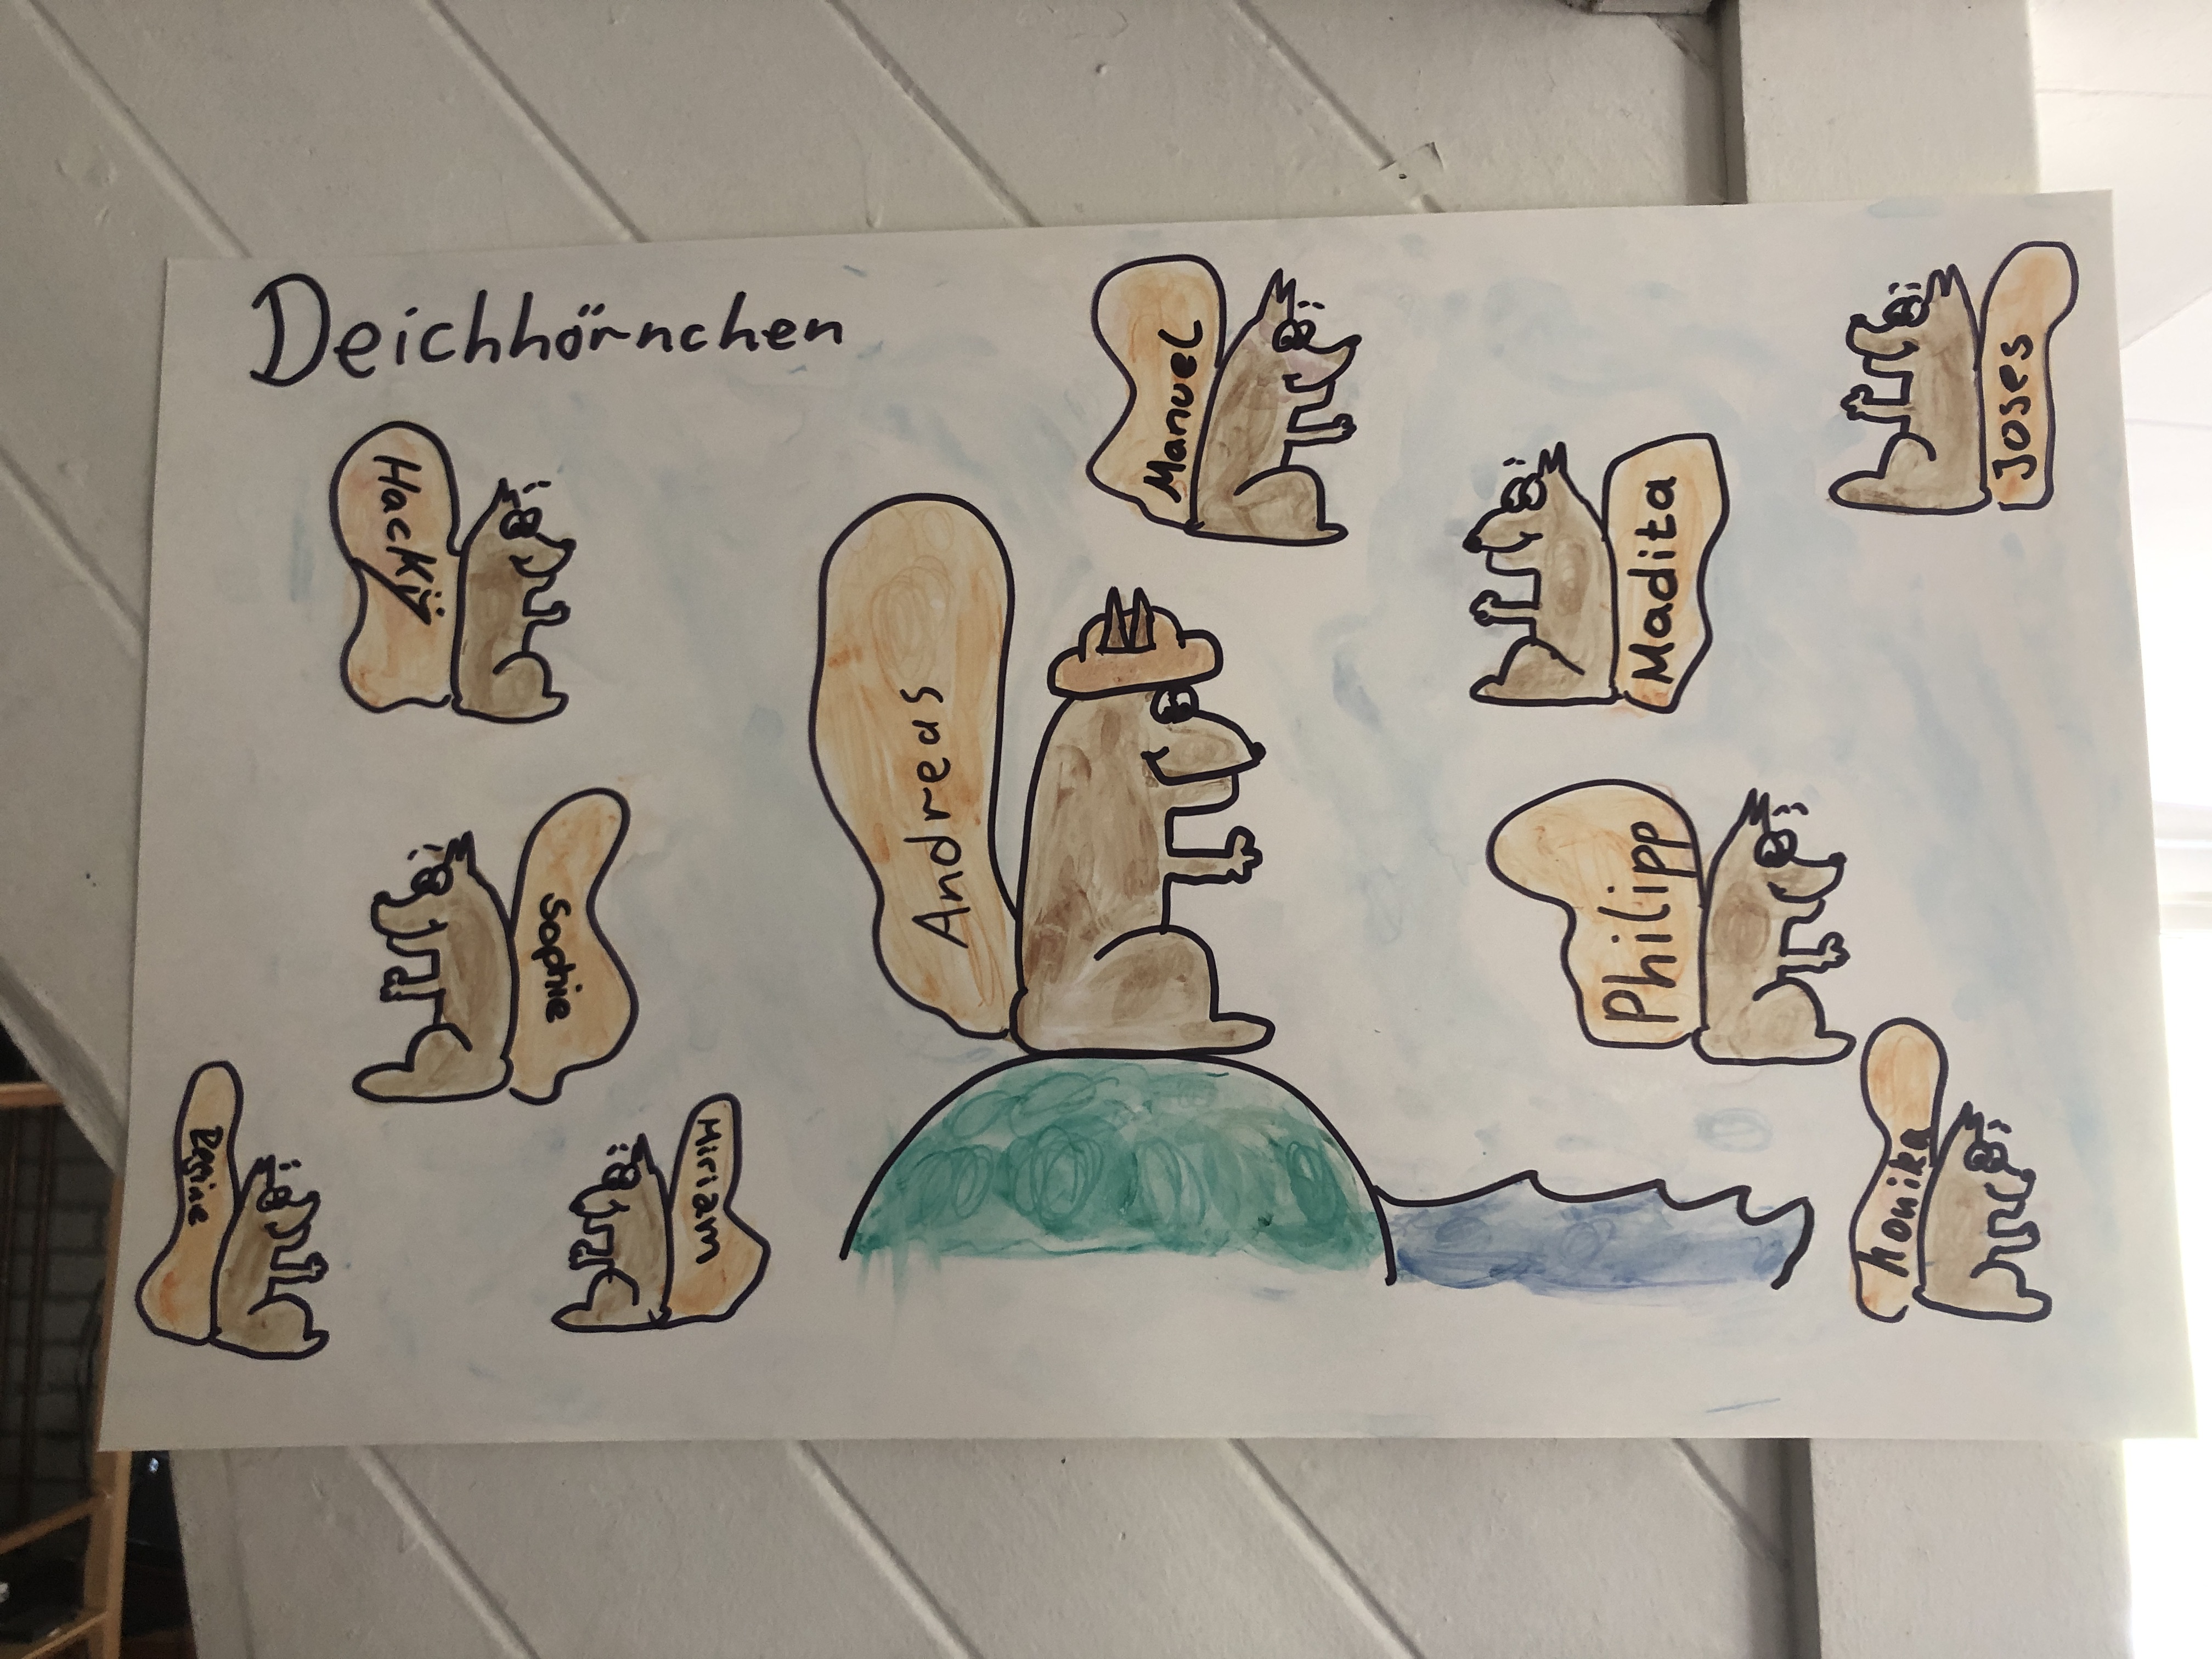 Deichhörnchen
Manuel
Joses
Hacky
Madita
Andreas
Philipp
Sophie
Miriam